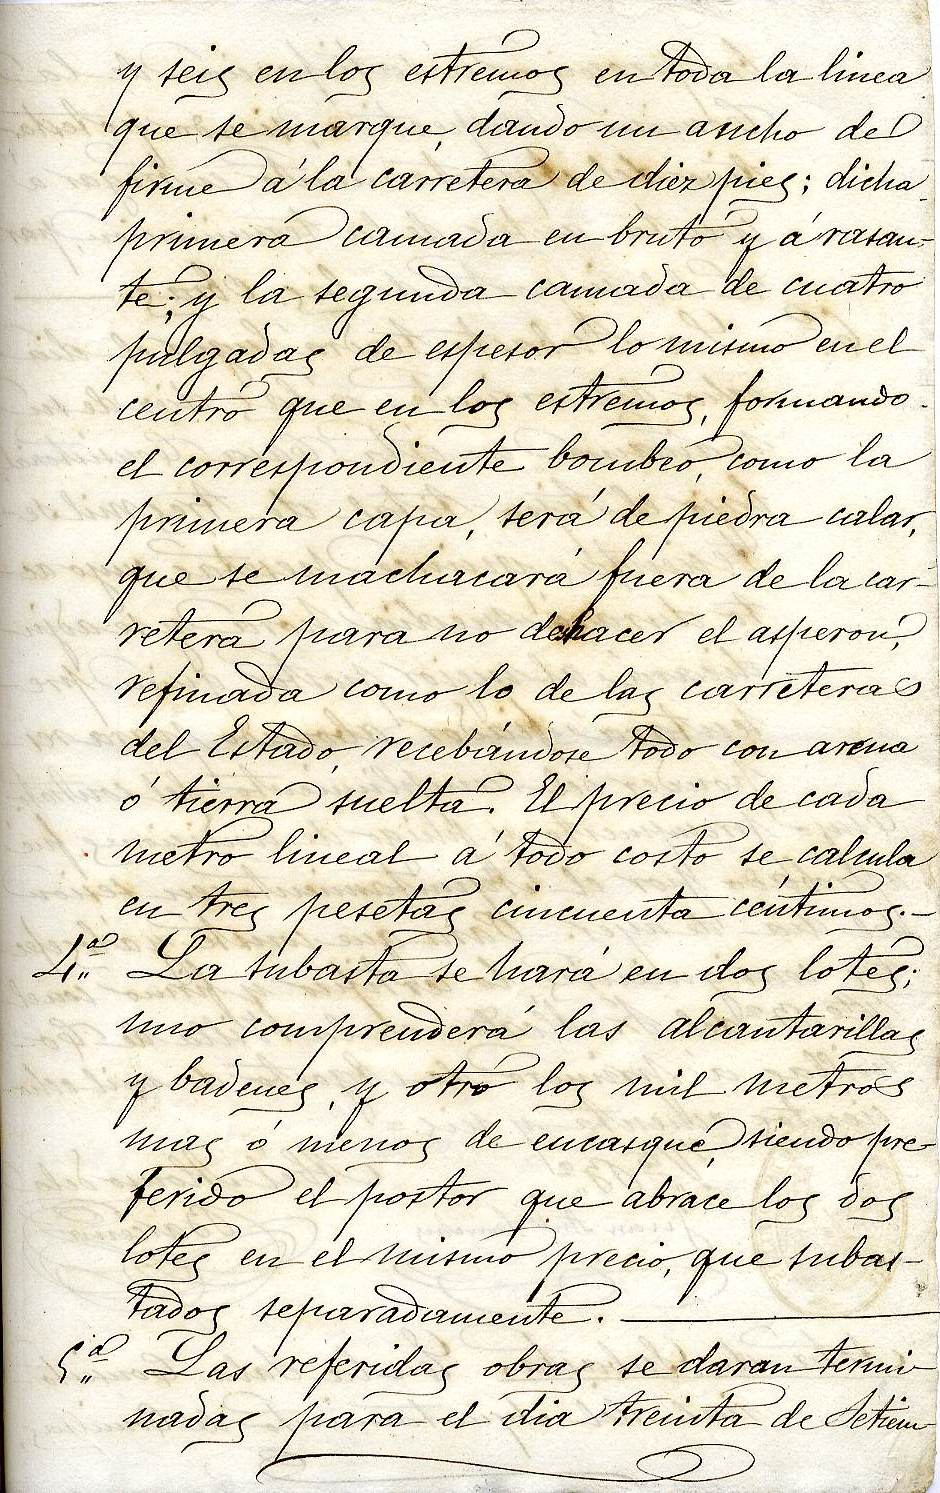 y seis en los estremos en toda la linea
que se marque, dando un ancho de
firme á la carretera de diez pies; dicha
primera camada en bruto y á rasan-
te; y la segunda camada de cuatro
pulgadas de espesor lo mismo en el
centro que en los estremos, formando
el correspondiente bombeo, como la
primera capa, será de piedra calar,
que se machacará fuera de la car-
retera para no dehacer el asperon,
refinada como lo de las carreteras
del Estado, recebándose todo con arena
ó tierra suelta. El precio de cada
metro lineal á todo costo se calcula
en tres pesetas cincuenta céntimos.—
4.ª La subasta se hará en dos lotes;
uno comprenderá las alcantarillas
y badenes, y otro los mil metros
mas ó menos de encasque, siendo pre-
ferido el postor que abrace los dos
lotes en el mismo precio, que subas-
tados separadamente.
5.ª Las referidas obras se daran termi-
nadas para el dia treinta de Setiem-